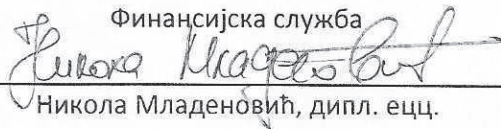 Финансијска служба
Никола Младеновић
Никола Младеновић, дипл. ецц.